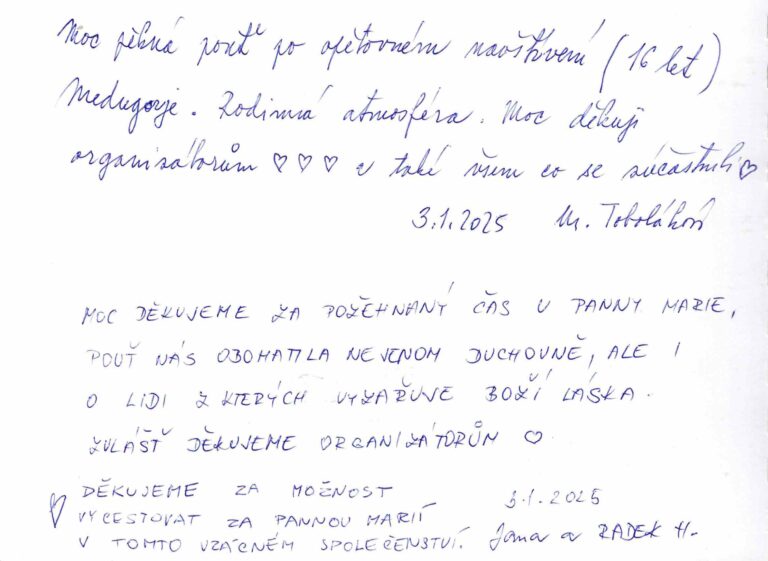 Moc pěkná pouť po opětovném navštívení (16 let)
Medugorje. Rodinná atmosféra. Moc děkuji
organisátorům ♡ ♡ ♡ a také všem co se súčastnili ♡
3.1.2025 M. Toboláková
MOC DĚKUJEME ZA POŽEHNANÝ ČAS U PANNY MARIE,
POUŤ NÁS OBOHATILA NEJENOM DUCHOVNĚ, ALE I
O LIDI Z KTERÝCH VYZAŘUJE BOŽÍ LÁSKA.
ZVLÁŠŤ DĚKUJEME ORGANIZÁTORŮM ♡
♡ DĚKUJEME ZA MOŽNOST
VYCESTOVAT ZA PANNOU MARIÍ
V TOMTO VZÁCNÉM SPOLEČENSTVÍ.
3.1.2025
Jana a RADEK H.